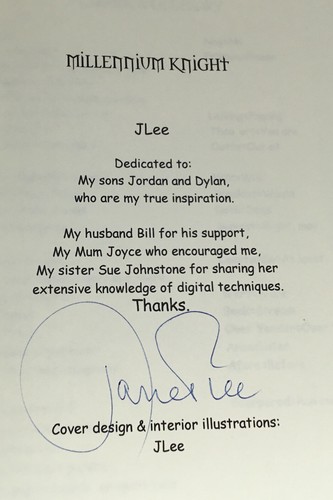 MILLENNIUM KNIGHT
JLee
Dedicated to:
My sons Jordan and Dylan,
who are my true inspiration.
My husband Bill for his support,
My Mum Joyce who encouraged me,
My sister Sue Johnstone for sharing her
extensive knowledge of digital techniques.
Thanks.
Janet Lee
Cover design & interior illustrations:
JLee